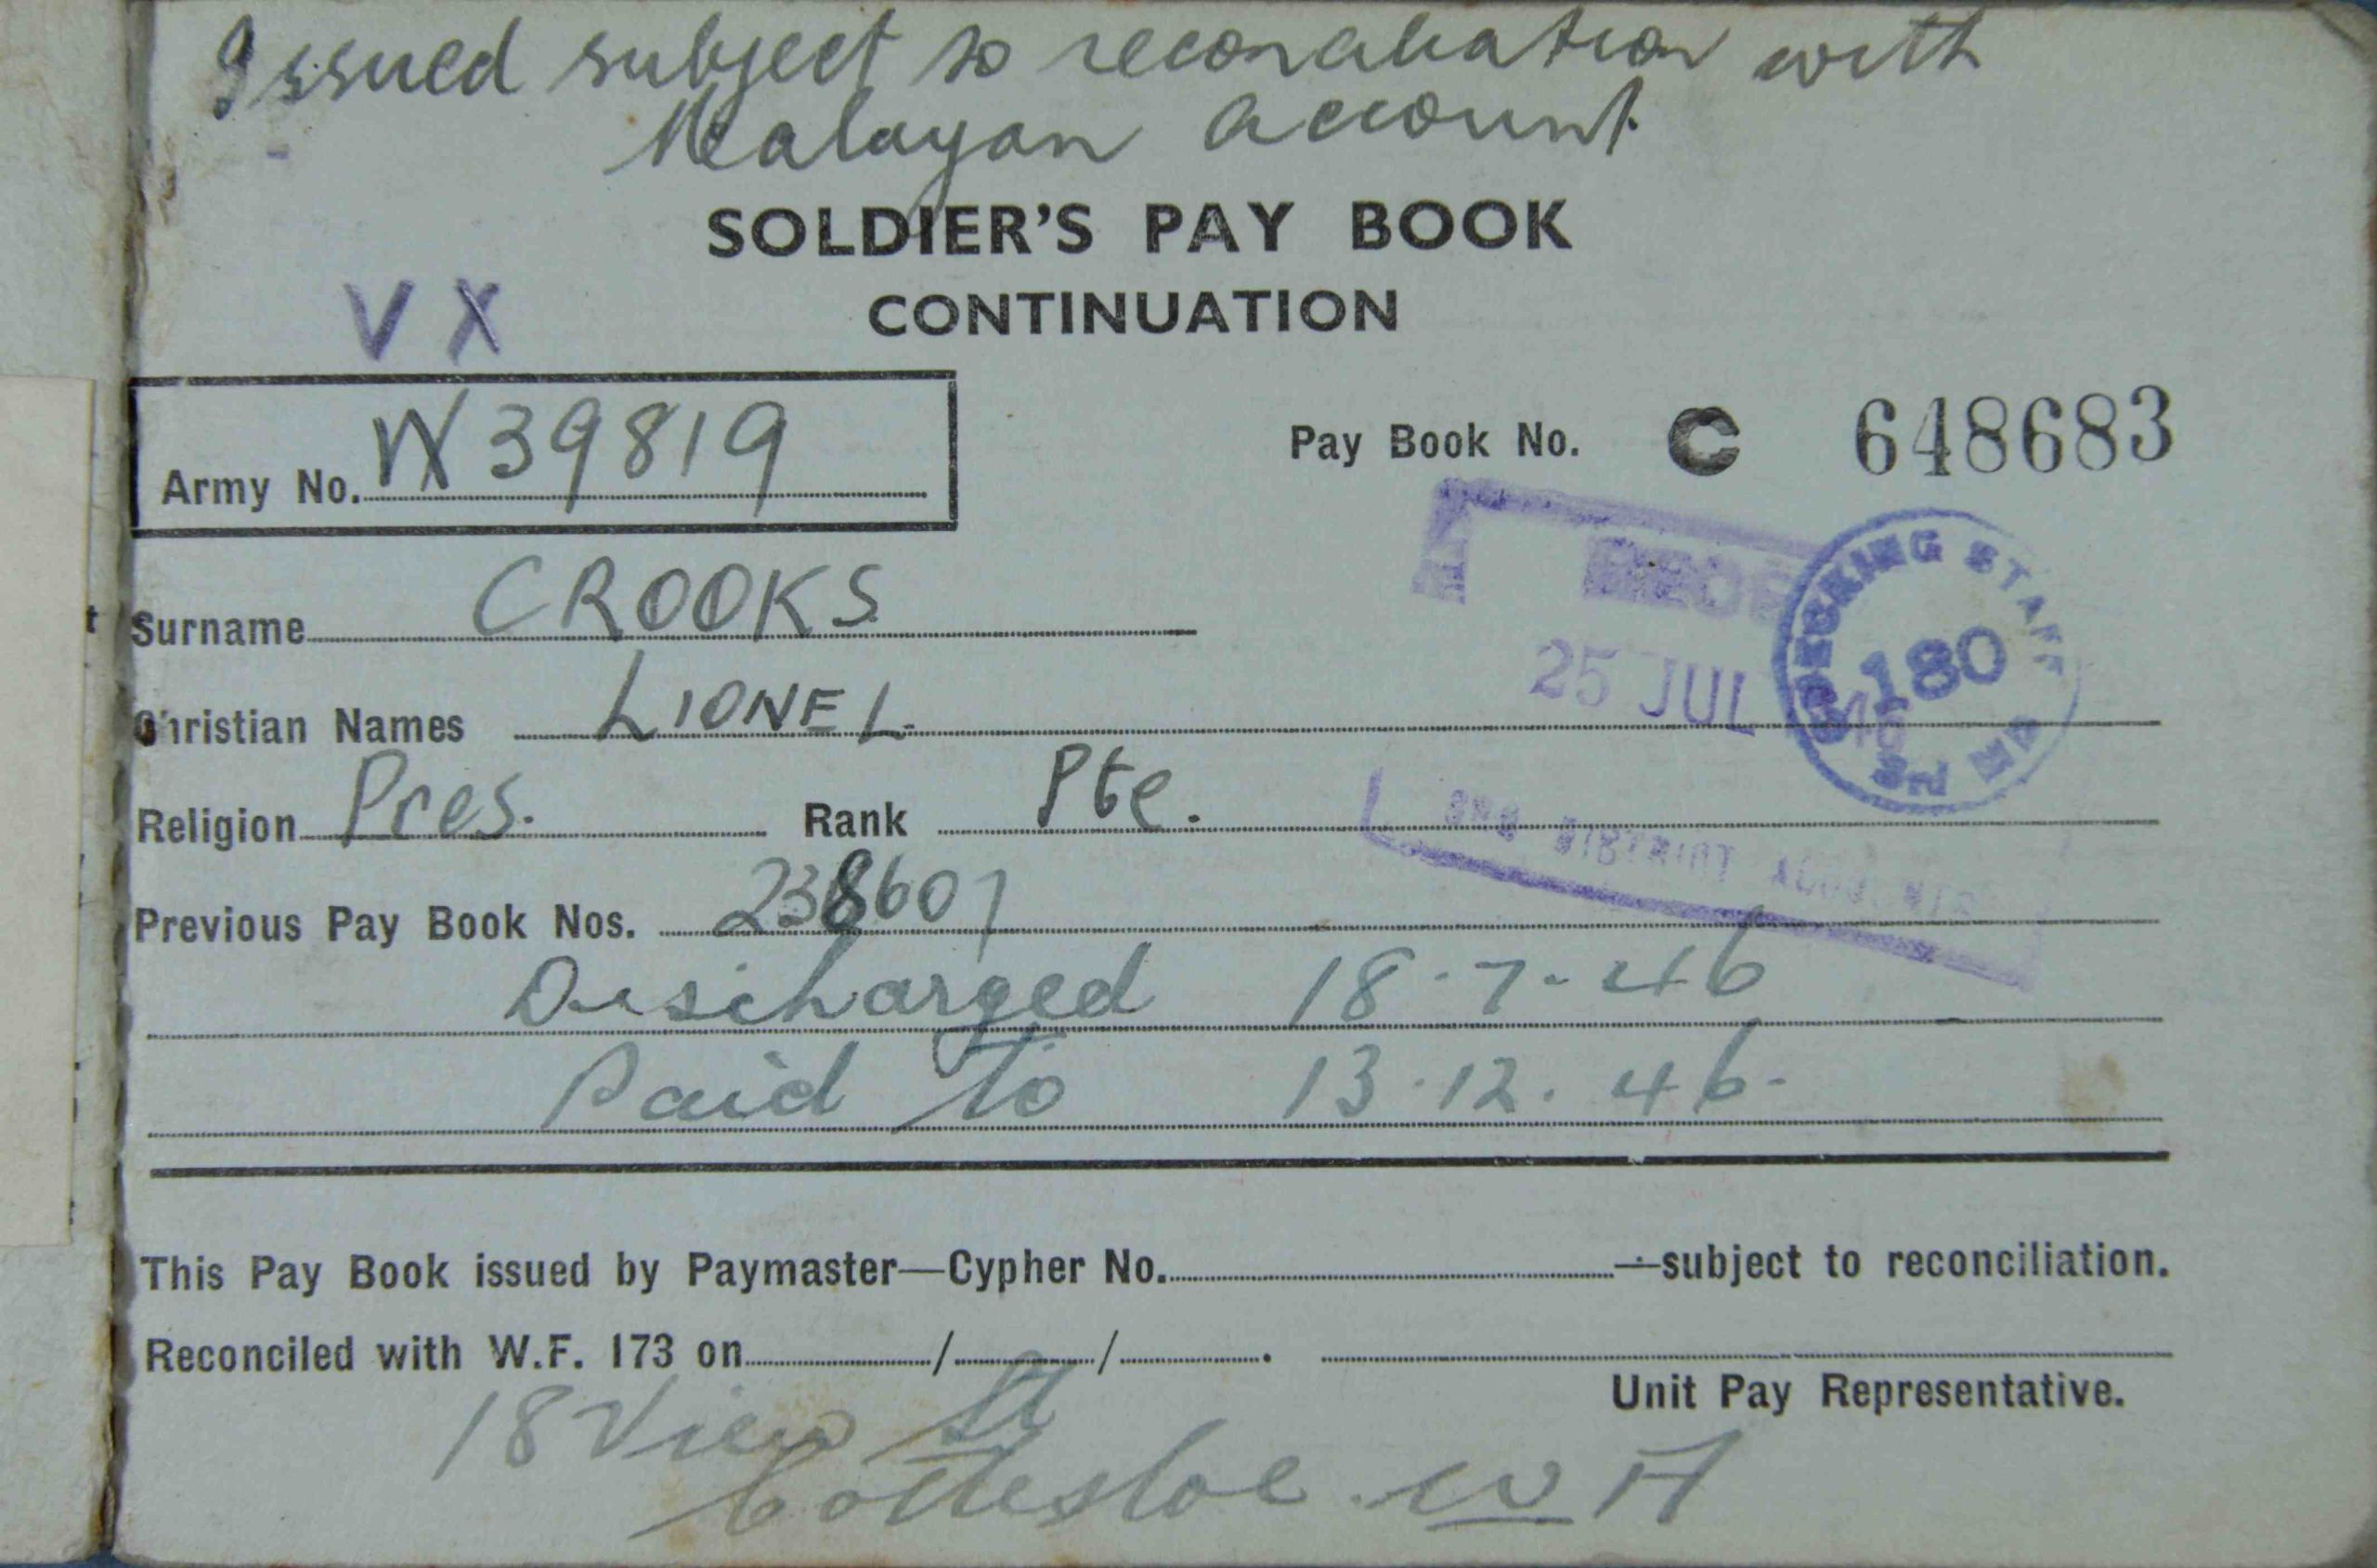 Issued subject to reconciliation with
Malayan account.
SOLDIER'S PAY BOOK
CONTINUATION
VX
Army No. VX39819
Pay Book No. C 648683
Surname CROOKS
Christian Names LIONEL.
25 JUL
CHECKING STAFF
180
3rd MD
Religion Pres. Rank Pte.
3RD DISTRICT ACCOUNTS
Previous Pay Book Nos. 238607
Discharged 18.7.46
Paid to 13.12.46.
This Pay Book issued by Paymaster—Cypher No. —subject to reconciliation.
Reconciled with W.F. 173 on / / .
Unit Pay Representative.
18 View St
Cottesloe. W A